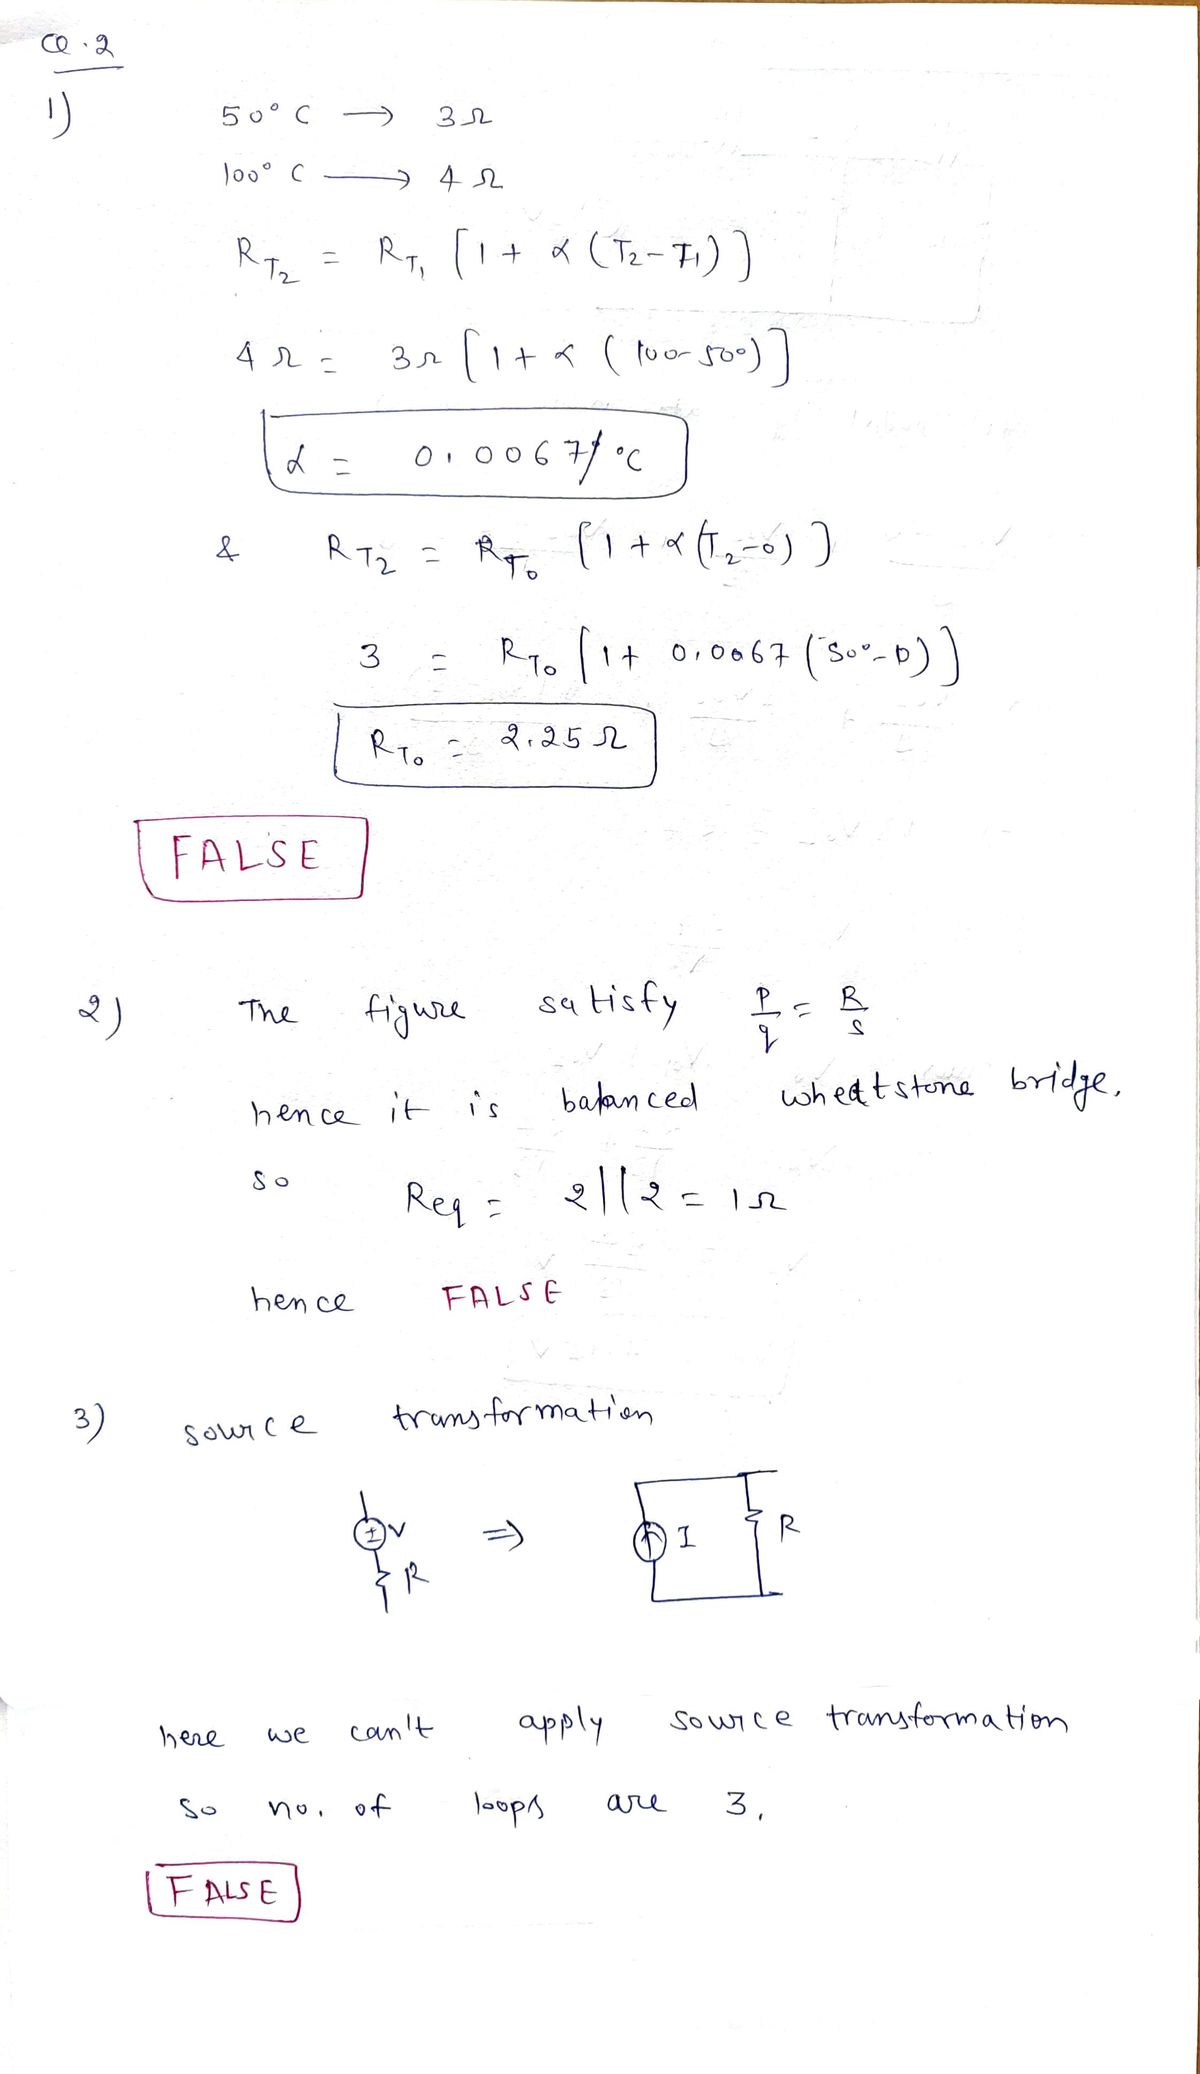 Q.2
1) 50° C → 3Ω
100° C → 4Ω
R_T2 = R_T1 [1 + α (T2 - T1)]
4Ω = 3Ω [1 + α (100 - 50°)]
α = 0.0067/°C
& R_T2 = R_T0 [1 + α (T2 - 0)]
3 = R_T0 [1 + 0.0067 (50° - 0)]
R_T0 = 2.25Ω
FALSE
2) The figure satisfy P/q = R/S
hence it is balanced wheatstone bridge.
so Req = 2||2 = 1Ω
hence FALSE
3) source transformation
± V R ⇒ I R
here we can't apply source transformation
so no. of loops are 3.
FALSE